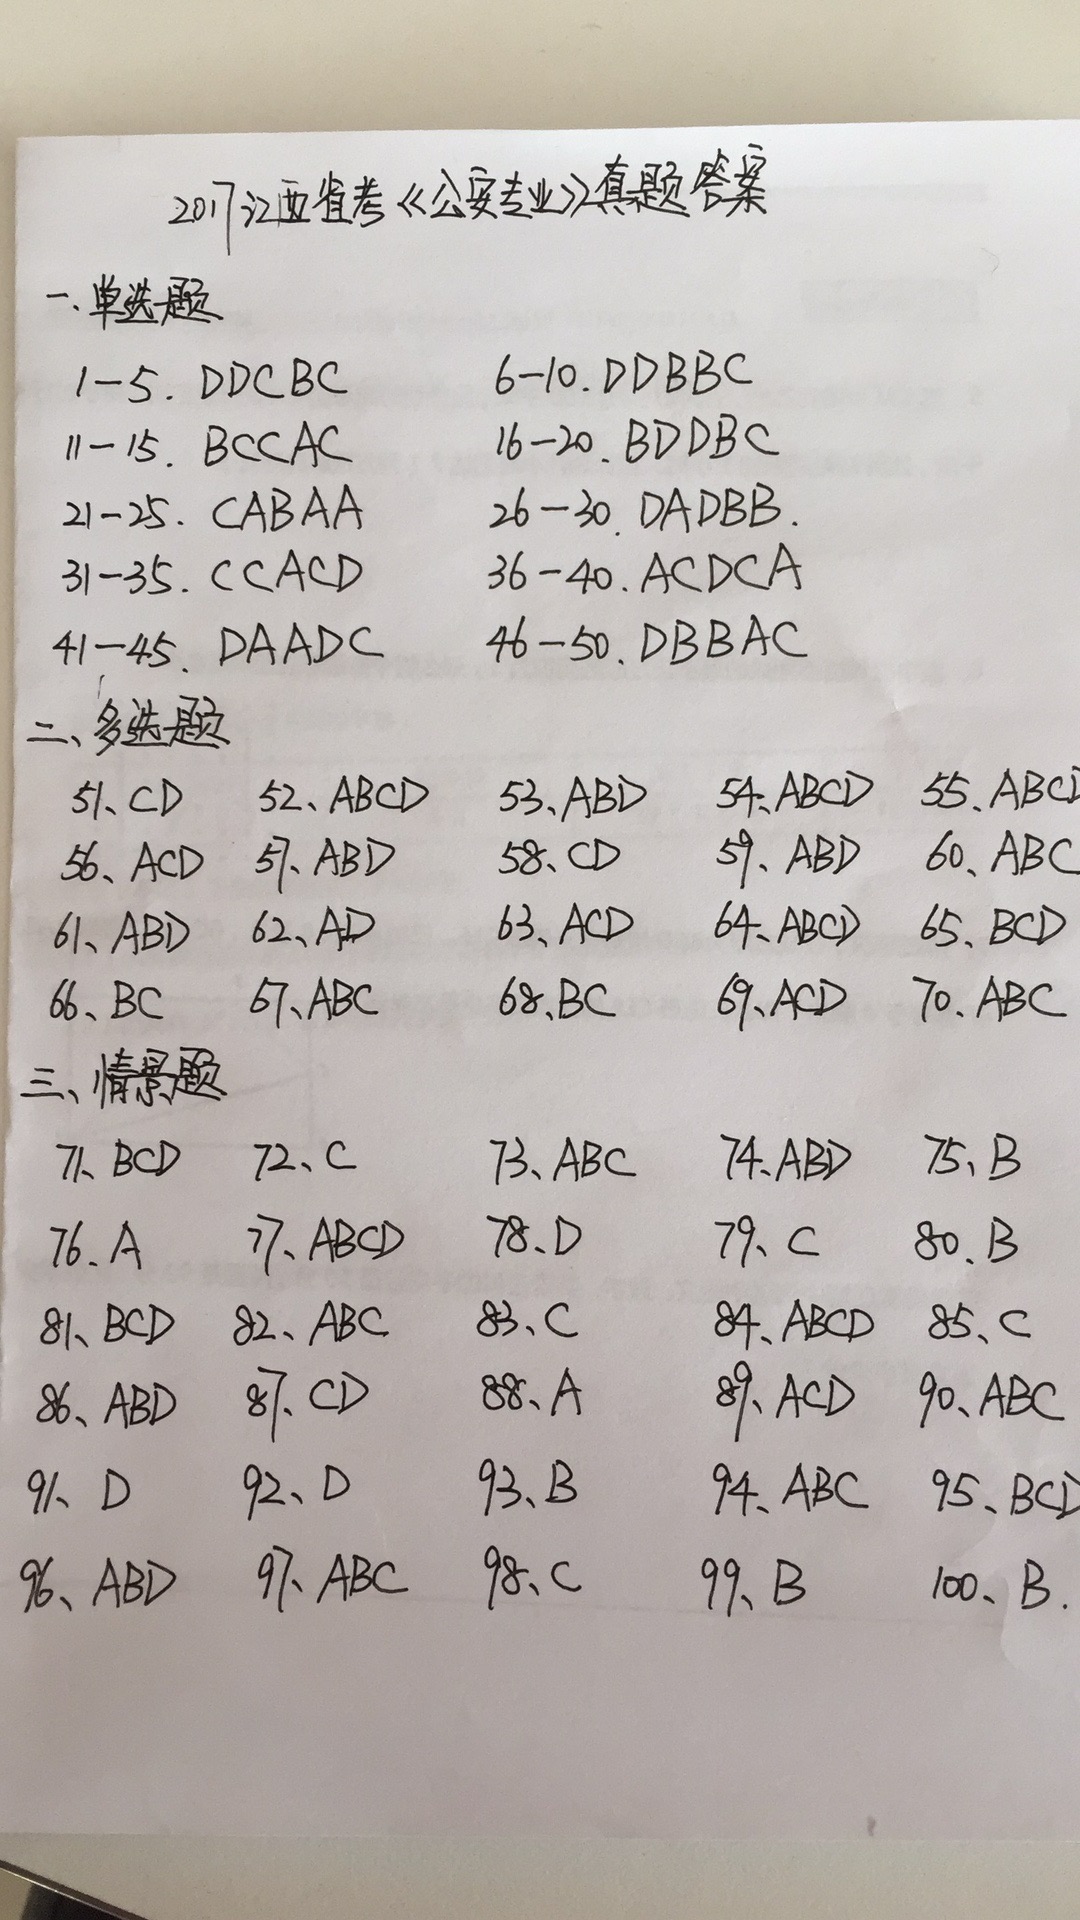 2017江西省考《公安专业》真题答案
一.单选题
1-5. DDCBC 6-10. DDBBC
11-15. BCCAC 16-20. BDDBC
21-25. CABAA 26-30. DADBB.
31-35. CCACD 36-40. ACDCA
41-45. DAADC 46-50. DBBAC
二、多选题
51、CD 52、ABCD 53、ABD 54、ABCD 55、ABCD
56、ACD 57、ABD 58、CD 59、ABD 60、ABC
61、ABD 62、AD 63、ACD 64、ABCD 65、BCD
66、BC 67、ABC 68、BC 69、ACD 70、ABC
三、情景题
71、BCD 72、C 73、ABC 74、ABD 75、B
76、A 77、ABCD 78、D 79、C 80、B
81、BCD 82、ABC 83、C 84、ABCD 85、C
86、ABD 87、CD 88、A 89、ACD 90、ABC
91、D 92、D 93、B 94、ABC 95、BCD
96、ABD 97、ABC 98、C 99、B 100、B.